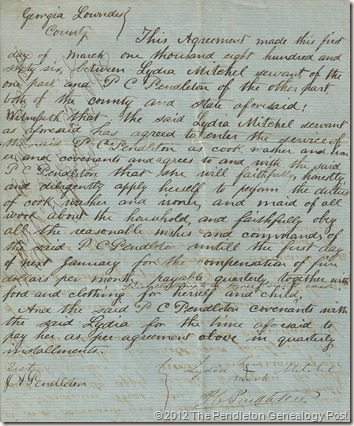 Georgia Lowndes
County
This Agreement made this first
day of march one thousand eight hundred and
sixty six, between Lydia Mitchel servant of the
one part and P C Pendleton of the other part
both of the county and state aforesaid:
Witnesseth that the said Lydia Mitchel servant
as aforesaid has agreed to enter the service of
the said P C Pendleton as cook washer and iron
er and covenants and agrees to and with the said
P C Pendleton that she will faithfully, honestly
and diligently apply herself to perform the duties
of cook washer and ironer, and maid of all
work about the household, and faithfully obey
all the reasonable wishes and commands of
the said P C Pendleton untill the first day
of next January for the compensation of five
dollars per month, payable quarterly together with
food and clothing for herself and child
And the said P C Pendleton covenants with
the said Lydia for the time aforesaid to
pay her as per agreement above in quarterly
installments.
Test
Lydia Mitchel
mark
Pendleton
P C Pendleton
©2012 The Pendleton Genealogy Post